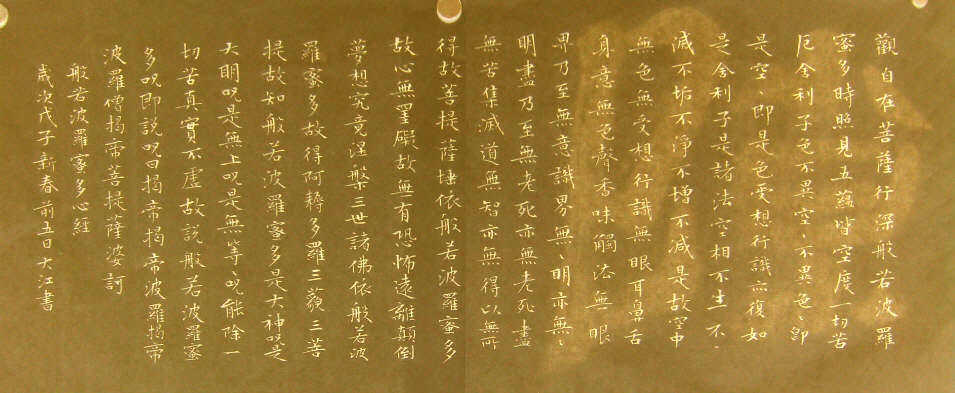 觀自在菩薩行深般若波羅
蜜多時照見五蘊皆空度一切苦
厄舍利子色不異空、不異色、即
是空、即是色受想行識亦復如
是舍利子是諸法空相不生不、
滅不垢不淨不增不減是故空中
無色無受想行識無眼耳鼻舌
身意無色聲香味觸法無眼
界乃至無意識界無、明亦無、
明盡乃至無老死亦無老死盡
無苦集滅道無智亦無得以無所
得故菩提薩埵依般若波羅蜜多
故心無罣礙故無有恐怖遠離顛倒
夢想究竟涅槃三世諸佛依般若波
羅蜜多故得阿耨多羅三藐三菩
提故知般若波羅蜜多是大神咒是
大明咒是無上咒是無等、咒能除一
切苦真實不虛故說般若波羅蜜
多咒即說咒曰揭帝揭帝波羅揭帝
波羅僧揭帝菩提薩婆訶
般若波羅蜜多心經
歲次戊子新春前五日大江書